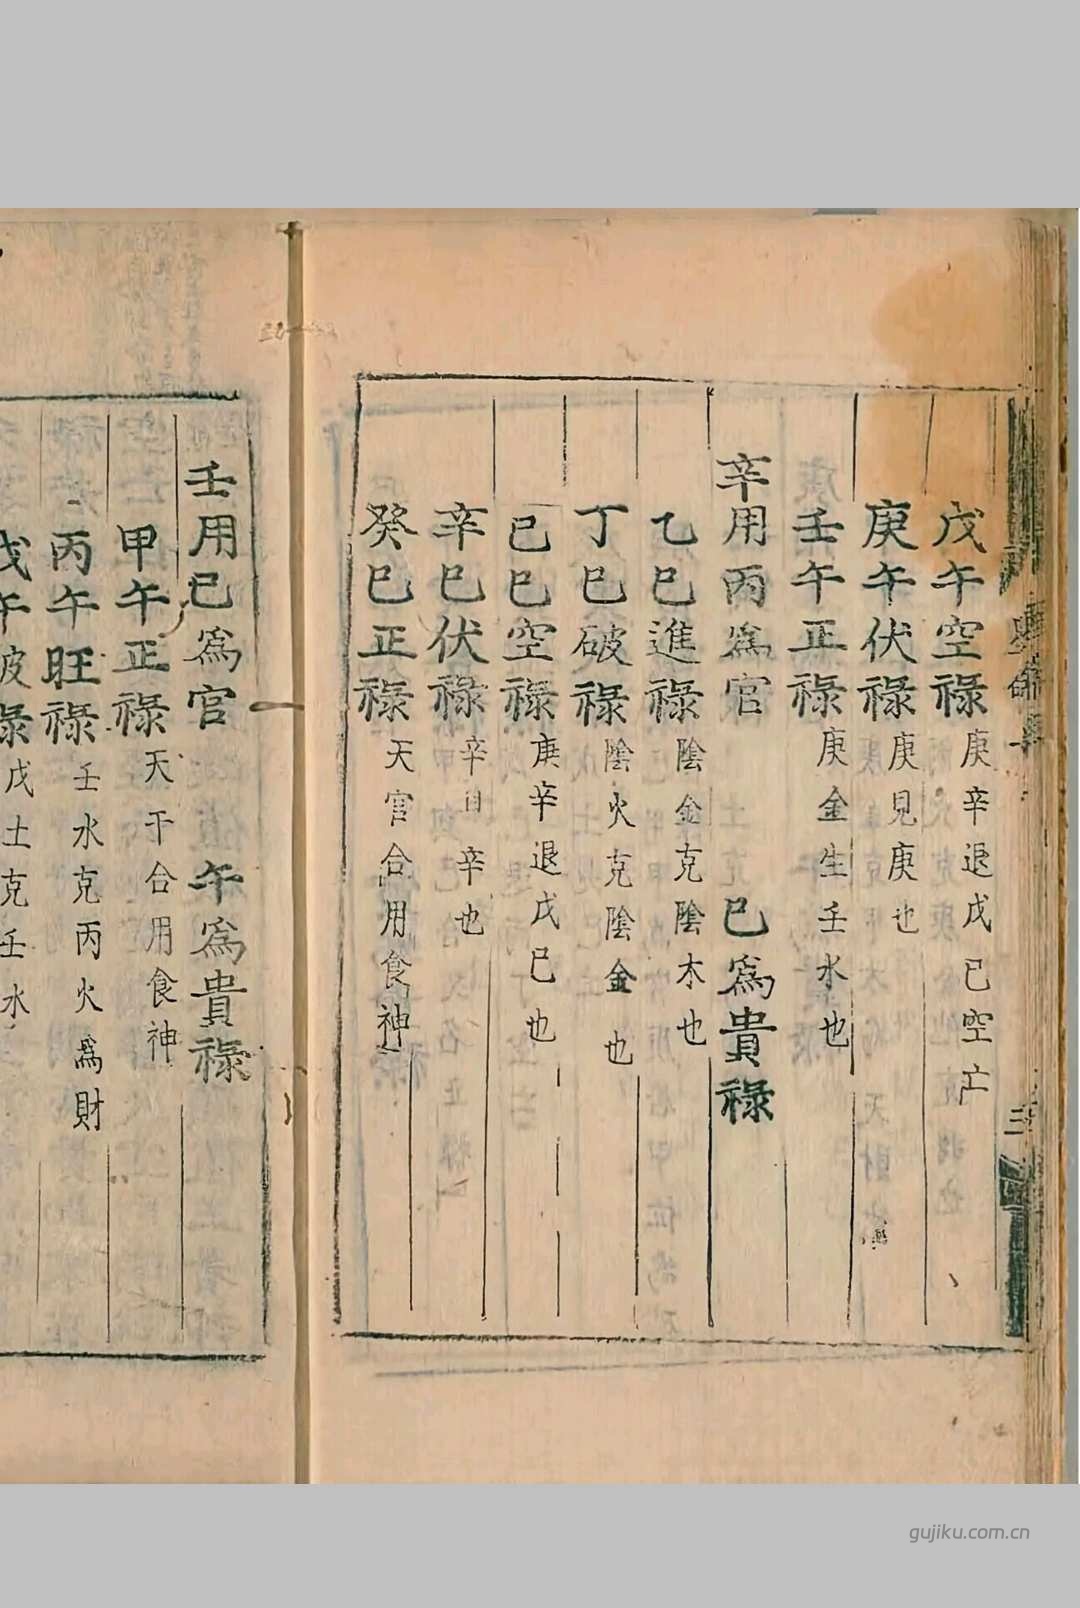 戊午空祿庚辛退戊己空亡
庚午伏祿庚見庚也
壬午正祿庚金生壬水也
辛用丙爲官 巳爲貴祿
乙巳進祿陰金克陰木也
丁巳破祿陰火克陰金也
己巳空祿庚辛退戊巳也
辛巳伏祿辛日辛也
癸巳正祿天官合用食神
壬用巳爲官 午爲貴祿
甲午正祿天干合用食神
丙午旺祿壬水克丙火爲財
戊午破祿戊土克壬水
gujiku.com.cn